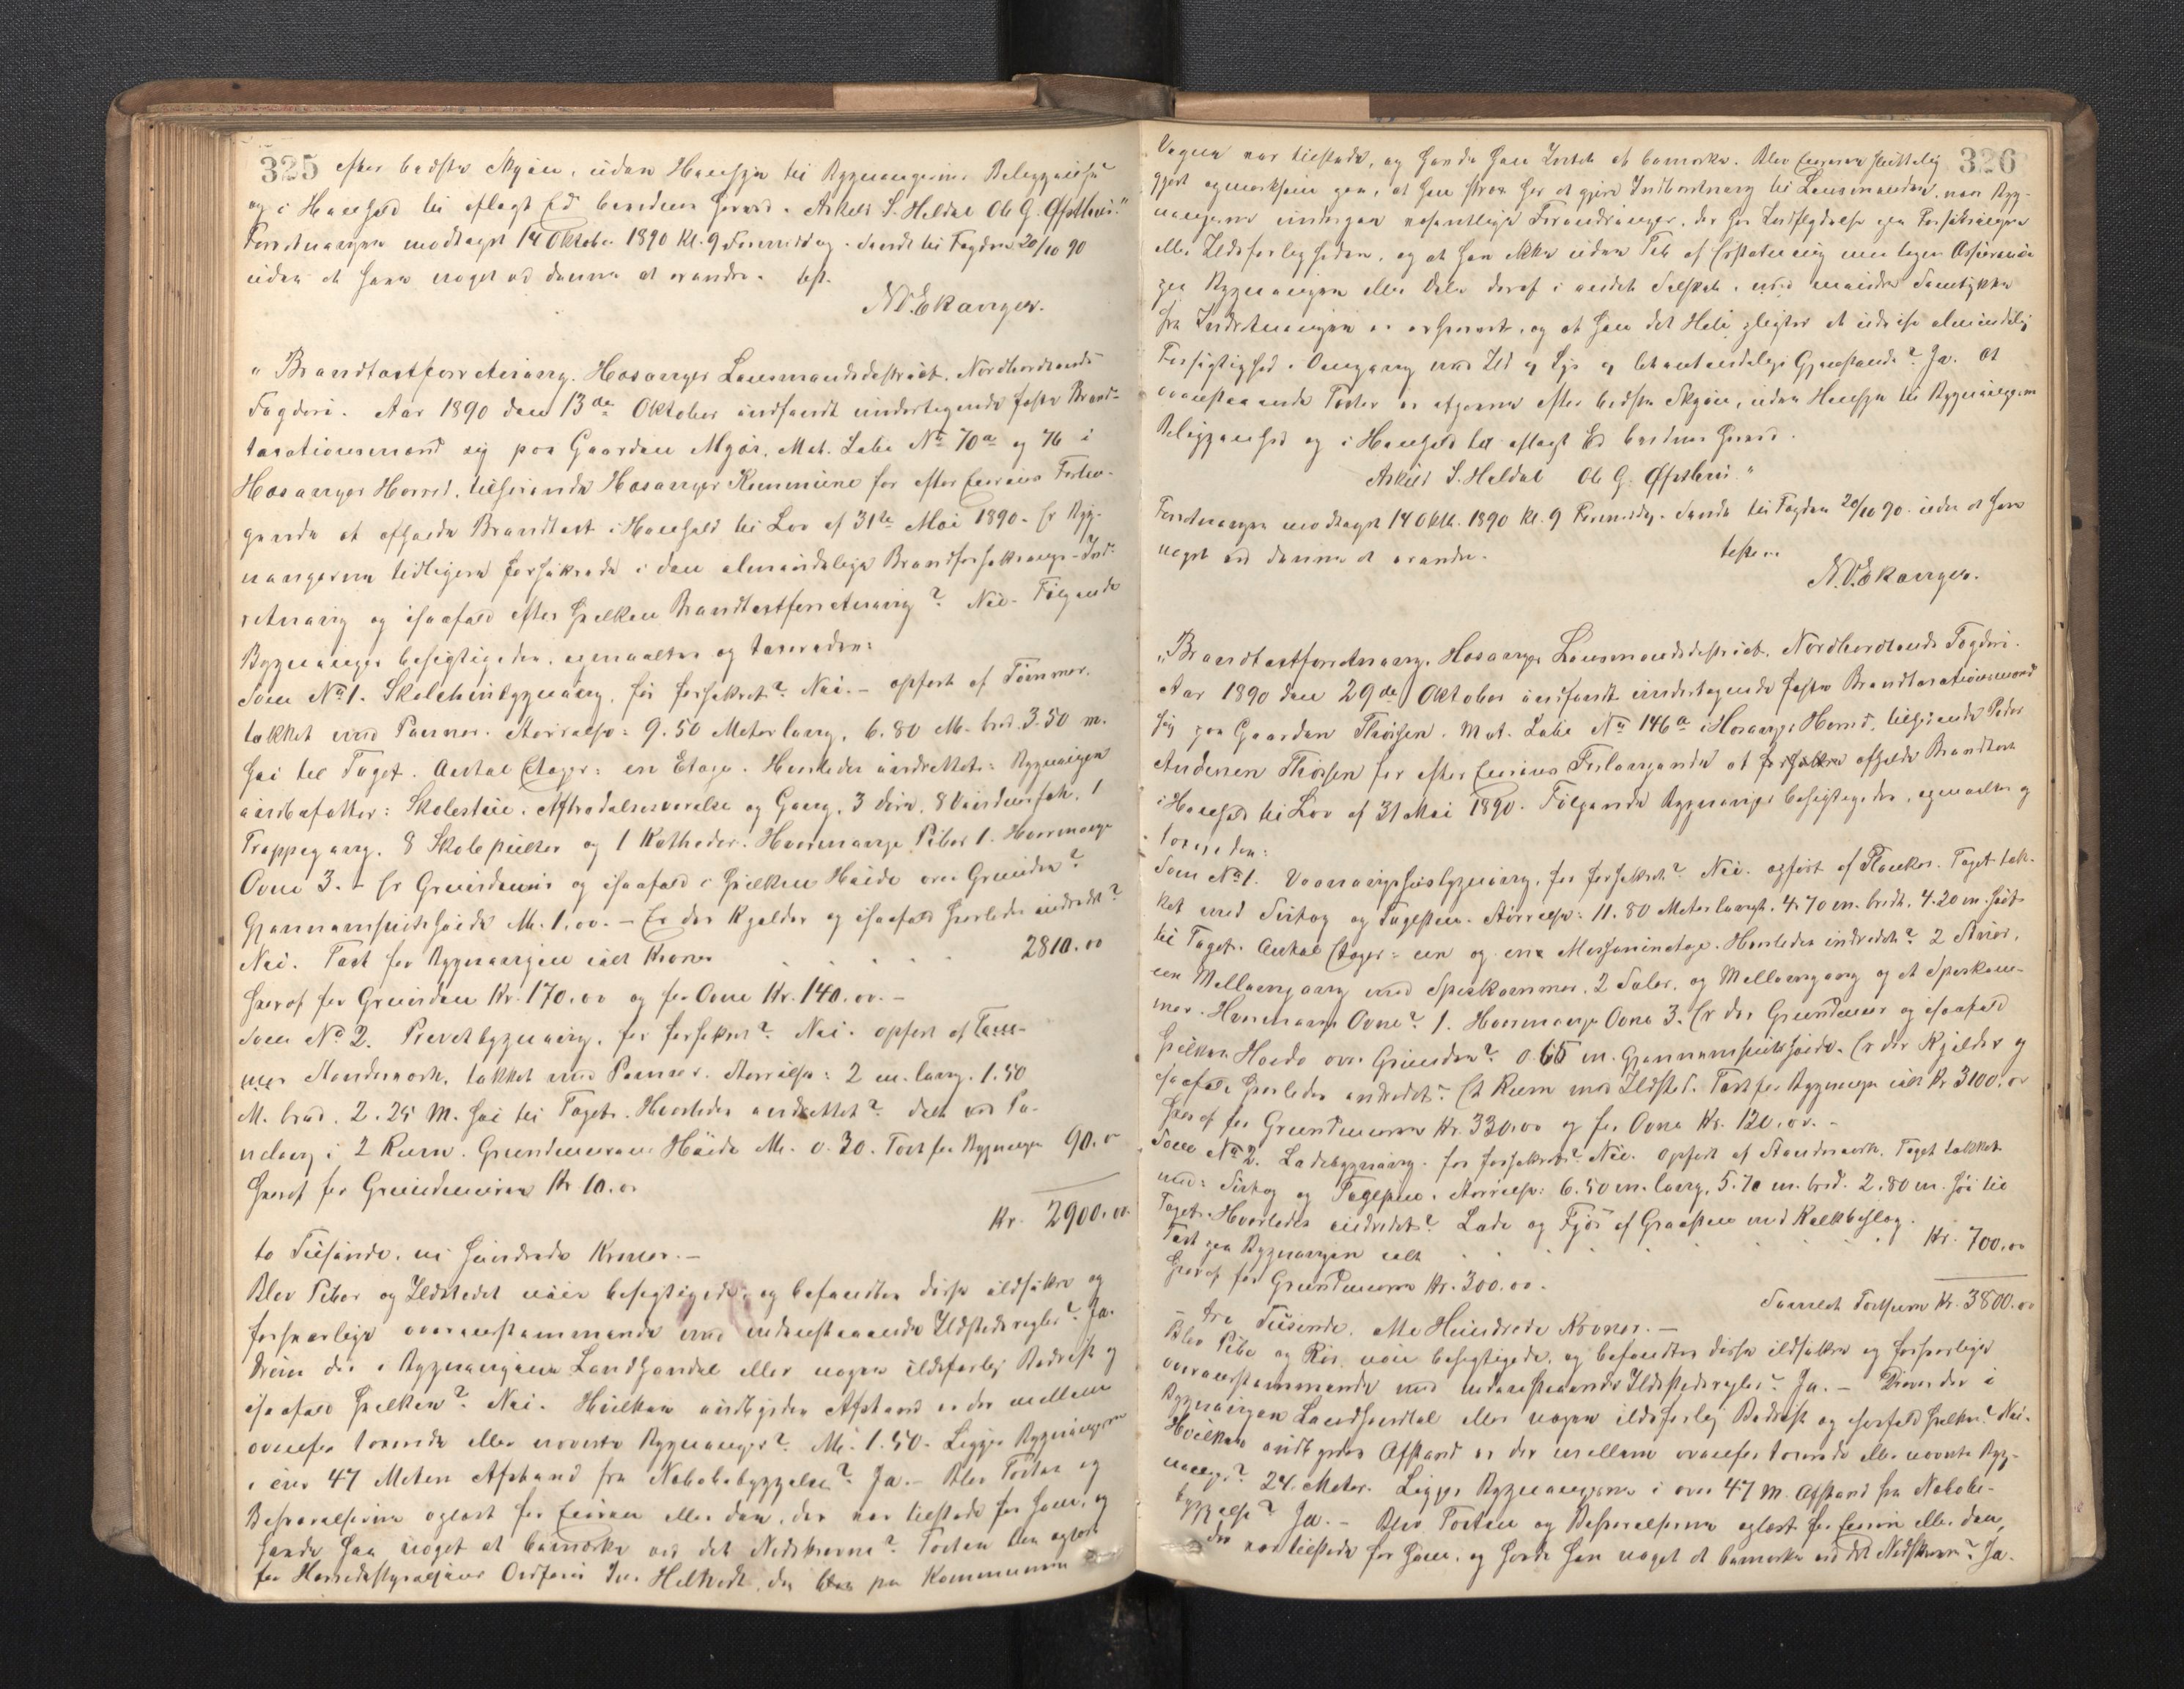 325 efter bedste Skjøn, uden Hensyn til Bygningernes Beliggenhed
og i Henhold til aflagt Ed bevidnes herved. Askild S. Heldal Ole G. Øpsthus."
Forretningen modtaget 14 Oktober 1890 Kl. 9 Formiddag. Sendt til Fogden 20/10 90
uden at have noget ved denne at erindre. test.
N. V. Ekanger.
"Brandtaxtforretning. Hosanger Lensmandsdistrict. Nordhordlands
Fogderi. Aar 1890 den 13de Oktober indfandt undertegnede faste Brand-
taxationsmænd sig paa Gaarden Mjøs, Mat. Løbe No 70a og 76 i
Hosanger Herred, tilhørende Hosanger Kommune for efter Eierens Forlan-
gende at afholde Brandtaxt i Henhold til Lov af 31te Mai 1890. Er Byg-
ningerne tidligere forsikrede i den almindelige Brandforsikrings-Ind-
retning og isaafald efter hvilken Brandtaxtforretning? Nei. Følgende
Bygninger besigtigedes, opmaaltes og taxeredes:
Som No 1. Skolehusbygning, før forsikret? Nei. - opført af Tømmer.
tækket med Panner. Størrelse: 9.50 Meter lang, 6.80 M. bred. 3.50 m.
høi til Taget. Antal Etager: en Etage. Hvorledes indrettet: Bygningen
indbefatter: Skolestue, Aftrædelsesværelse og Gang, 3 Døre, 8 Vinduesfah, 1
Trappegang. 8 Skolepulter og 1 Katheder. Hvormange Piber 1. Hvormange
Ovne 3. - Er Grundmur og isaafald i hvilken Høide over Grunden?
Gjennemsnitshøide M. 1.00. - Er der Kjelder og isaafald hvorledes indredet?
Nei. Taxt for Bygningen ialt Kroner . . . . . 2810.00
hvoraf for Grunden Kr. 170.00 og for Ovne Kr. 140.00. -
Som No 2. Privetbygning, før forsikret? Nei. opført af Tøm-
mer Stenderværk, tækket med Panner. Størrelse: 2 m. lang. 1.50
M. bred. 2.25 M. høi til Taget. Hvorledes indrettet? delt ved Pa-
neling i 2 Rum. Grundmurens Høide M. 0.30. Taxt for Bygningen 90.00
hvoraf for Grundmuren Kr. 10.00
Kr. 2900.00
to Tusinde, ni Hundrede Kroner. -
Blev Piber og Ildstedet nøie besigtigede og befandtes disse ildsikre og
forsvarlige overensstemmende med nedenstaaende Ildstedsregler? Ja.
Drives der i Bygningerne Landhandel eller nogen ildsfarlig Bedrift og
isaafald hvilken? Nei. Hvilken indbyrdes Afstand er der mellem
ovenfor taxerede eller nævnte Bygninger? M. 1.50. Ligger Bygningerne
i over 47 Meters Afstand fra Nabobebyggelse? Ja. - Blev Taxten og
Beskrivelserne oplæst for Eieren eller den, der var tilstede for ham, og
havde han noget at bemærke ved det Nedskrevne? Taxten blev oplæst
for Herredsstyrelsens Ordfører Iver Heltvedt, der paa Kommunens
326
Vegne var tilstede, og havde han Intet at bemærke. Blev Eieren skriftlig
gjort opmærksom paa, at han strax har at gjøre Indberetning til Lensmanden, naar Byg-
ningerne undergaar væsentlige Forandringer, der har Indflydelse paa Forsikringen
eller Ildsfarligheden, og at han ikke uden Tab af Erstatning maa tegne Assurance
paa Bygningen eller Dele deraf i andet Selskab, med mindre Samtykke
fra Indretningen er erhvervet, og at han det Hele pligter at udvise almindelig
Forsigtighed i Omgang med Ild og Lys og letantændelige Gjenstande? Ja. At
ovenstaaende Taxter er afgivne efter bedste Skjøn, uden Hensyn til Bygningernes
Beliggenhed og i Henhold til aflagt Ed bevidnes herved.
Askild S. Heldal Ole G. Øpsthus."
Forretningen modtaget 14 Oktbr. 1890 Kl. 9 Formiddag. Sendt til Fogden 20/10 90 uden at have
noget ved denne at erindre.
testerer
N. V. Ekanger.
"Brandtaxtforretning. Hosanger Lensmandsdistrict. Nordhordlands Fogderi.
Aar 1890 den 29de Oktober indfandt undertegnede faste Brandtaxationsmænd
sig paa Gaarden Thorsen. Mat. Løbe No 146a i Hosanger Herred, tilhørende Peder
Andersen Thorsen for efter Eierens Forlangende at forsikre afholde Brandtaxt
i Henhold til Lov af 31 Mai 1890. Følgende Bygninger besigtigedes, opmaaltes og
taxeredes:
Som No 1. Vaaningshusbygning, før forsikret? Nei. opført af Planker. Taget tæk-
ket med Sutag og Tagsten. Størrelse: 11.80 Meter langt, 4.70 m. bredt. 4.20 m. høit
til Taget. Antal Etager: een og een Messaninetage. Hvorledes indredet? 2 Stuer,
een Mellemgang med Spiskammer, 2 Saler, og Mellemgang og et Spiskam-
mer. Hvormange Ovne? 1. Hvormange Ovne 3. Er der Grundmur og isaafald
hvilken Høide over Grunden? 0.65 m. Gjennemsnitshøide. Er der Kjelder og
isaafald hvorledes indredet? Et Rum med Ildsted. Taxt for Bygningen ialt Kr 3100.00
hvoraf for Grundmuren Kr. 330.00 og for Ovne Kr. 120.00. -
Som No 2. Ladebygning. før forsikret? Nei. Opført af Stenderværk. Taget tækket
med: Sutag og Tagsten. Størrelse: 6.50 m. lang, 5.70 m. bred. 2.80 m. høi til
Taget. Hvorledes indredet? Lade og Fjøs af Graasten med Kalkbeslag.
Taxt paa Bygningen ialt . . . . . . . . Kr. 700.00
hvoraf for Grundmuren Kr. 300.00.
Samlet Taxtsum Kr. 3800.00
- tre Tusinde, otte Hundrede Kroner. -
Blev Pibe og Rør nøie besigtigede, og befandtes disse ildsikre og forsvarlige
overensstemmende med nedenstaaende Ildstedsregler? Ja. - Drives der i
Bygningen Landhandel eller nogen ildsfarlig Bedrift og isaafald hvilken? Nei.
Hvilken indbyrdes Afstand er der mellem ovenfor taxerede eller nævnte Byg-
ninger? 24 Meter. Ligger Bygningerne i over 47 M. Afstand fra Nabobe-
byggelse? Ja. - Blev Taxten og Beskrivelserne oplæst for Eieren eller den,
der var tilstede for ham, og havde han noget at bemærke ved det Nedskrevne? Ja.